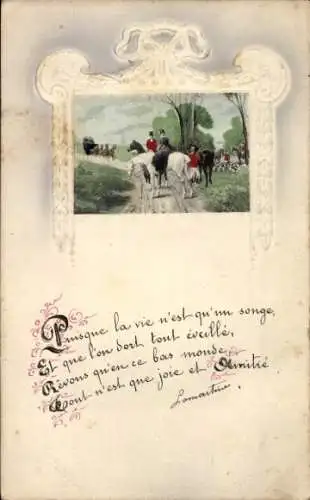 Puisque la vie n'est qu'un songe,
Et que l'on dort tout éveillé,
Rêvons qu'en ce bas monde
Tout n'est que joie et Amitié.
Lamartine.